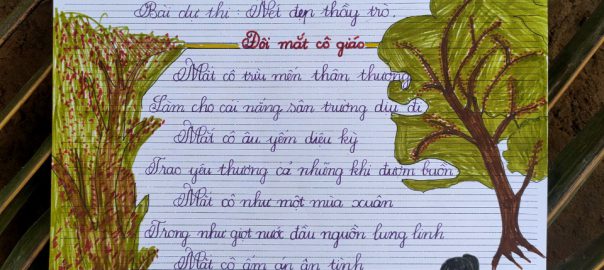 Bài dự thi : Nét đẹp thầy trò.
Đôi mắt cô giáo
Mắt cô trìu mến thân thương
Làm cho cái nắng sân trường dịu đi
Mắt cô âu yếm diệu kỳ
Trao yêu thương cả những khi đượm buồn
Mắt cô như một mùa xuân
Trong như giọt nước đầu nguồn lung linh
Mắt cô ấm áp ân tình